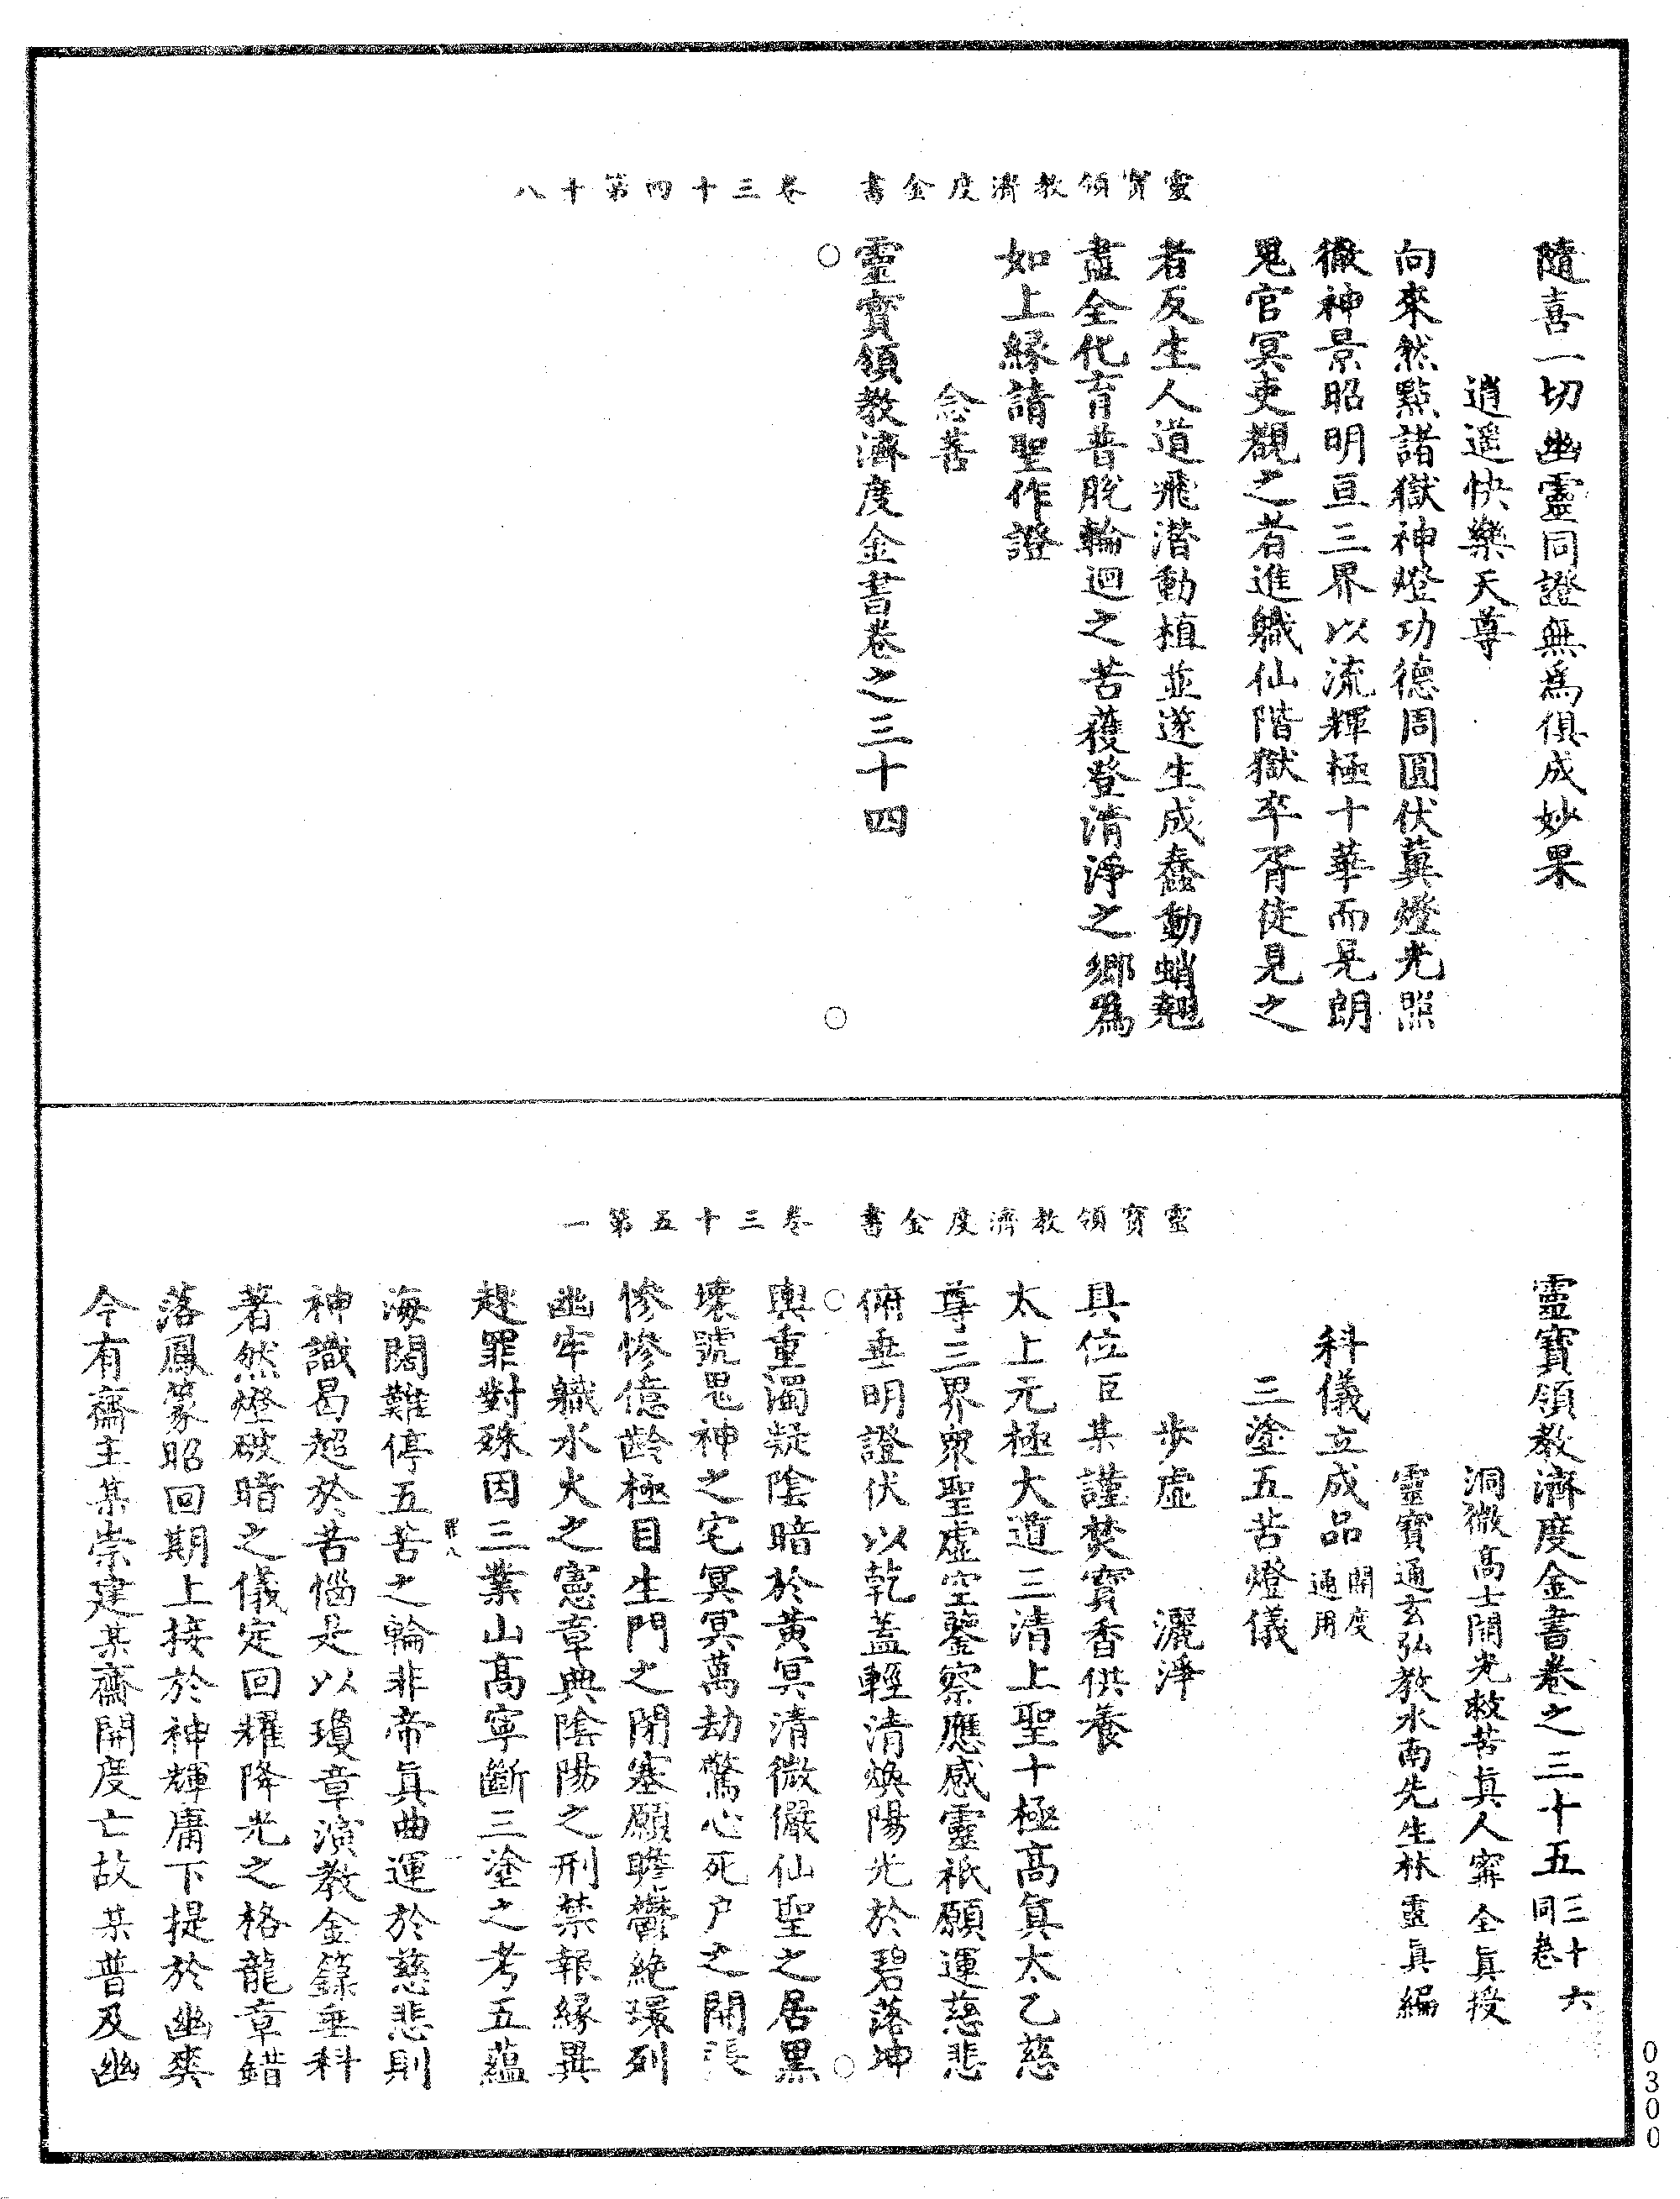 靈寶領教濟度金書　卷三十四第十八
隨喜一切幽靈同證無為俱成妙果
逍遥快樂天尊
向來然點諸獄神燈功德周圓伏冀燈光照
徹神景昭明亘三界以流輝極十華而晃朗
鬼官冥吏覩之者進軄仙階獄卒胥徒見之
者反生人道飛潛動植並遂生成蠢動蛸翹
盡全化育普脫輪迴之苦獲登清淨之鄉為
如上緣請聖作證
念善
靈寶領教濟度金書卷之三十四
靈寶領教濟度金書　卷三十五第一
靈寶領教濟度金書卷之三十五 三十六同卷
洞微高士開光救苦真人寗全真授
靈寶通玄弘教水南先生林靈真編
科儀立成品 開度通用
三塗五苦燈儀
步虛　灑淨
具位臣某謹焚寶香供養
太上元極大道三清上聖十極高真太乙慈
尊三界衆聖虛空鑒察應感靈祇願運慈悲
俯垂明證伏以乾蓋輕清煥陽光於碧落坤
輿重濁凝陰暗於黃冥清微儼仙聖之居黑
壞號鬼神之宅冥冥萬劫驚心死户之開張
慘慘億齡極目生門之閉塞願瞻欝絶環列
幽牢軄水火之憲章典陰陽之刑禁報緣異
趣罪對殊因三業山高寧斷三塗之考五蘊
海闊難停五苦之輪非帝真曲運於慈悲則
神識曷超於苦惱是以瓊章演教金籙垂科
著然燈破暗之儀定回耀降光之格龍章錯
落鳳篆昭回期上接於神輝庸下提於幽爽
今有齋主某崇建某齋開度亡故某普及幽
0300